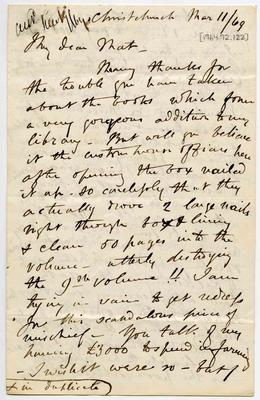 Christchurch Mar 11/69
[1964.72.122]
My dear Nat –
Many thanks for
the trouble you have taken
about the books which form
a very gorgeous addition to my
library – But will you believe
it the custom house officers here
after opening the box nailed
it up so carelessly that they
actually drove 2 large nails
right through box & lining
& clean 60 pages into the
volume – utterly destroying
the 9th volume !! I am
trying in vain to get redress
for this scandalous piece of
mischief – You talk of my
having £3000 to spend in farming
– I wish it were so – but I
+ in duplicate